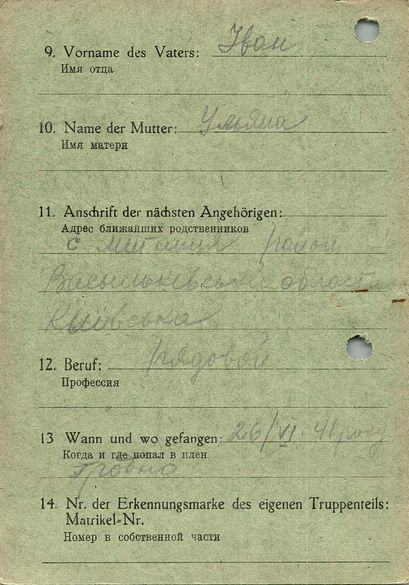 9. Vorname des Vaters: Іван
Имя отца
10. Name der Mutter: Ульяна
Имя матери
11. Anschrift der nächsten Angehörigen:
Адрес ближайших родственников
с. район
Васыльківський области
Київська
12. Beruf: рядовой
Профессия
13 Wann und wo gefangen: 26/VI-41 году
Когда и где попал в плен
14. Nr. der Erkennungsmarke des eigenen Truppenteils:
Matrikel-Nr.
Номер в собственной части